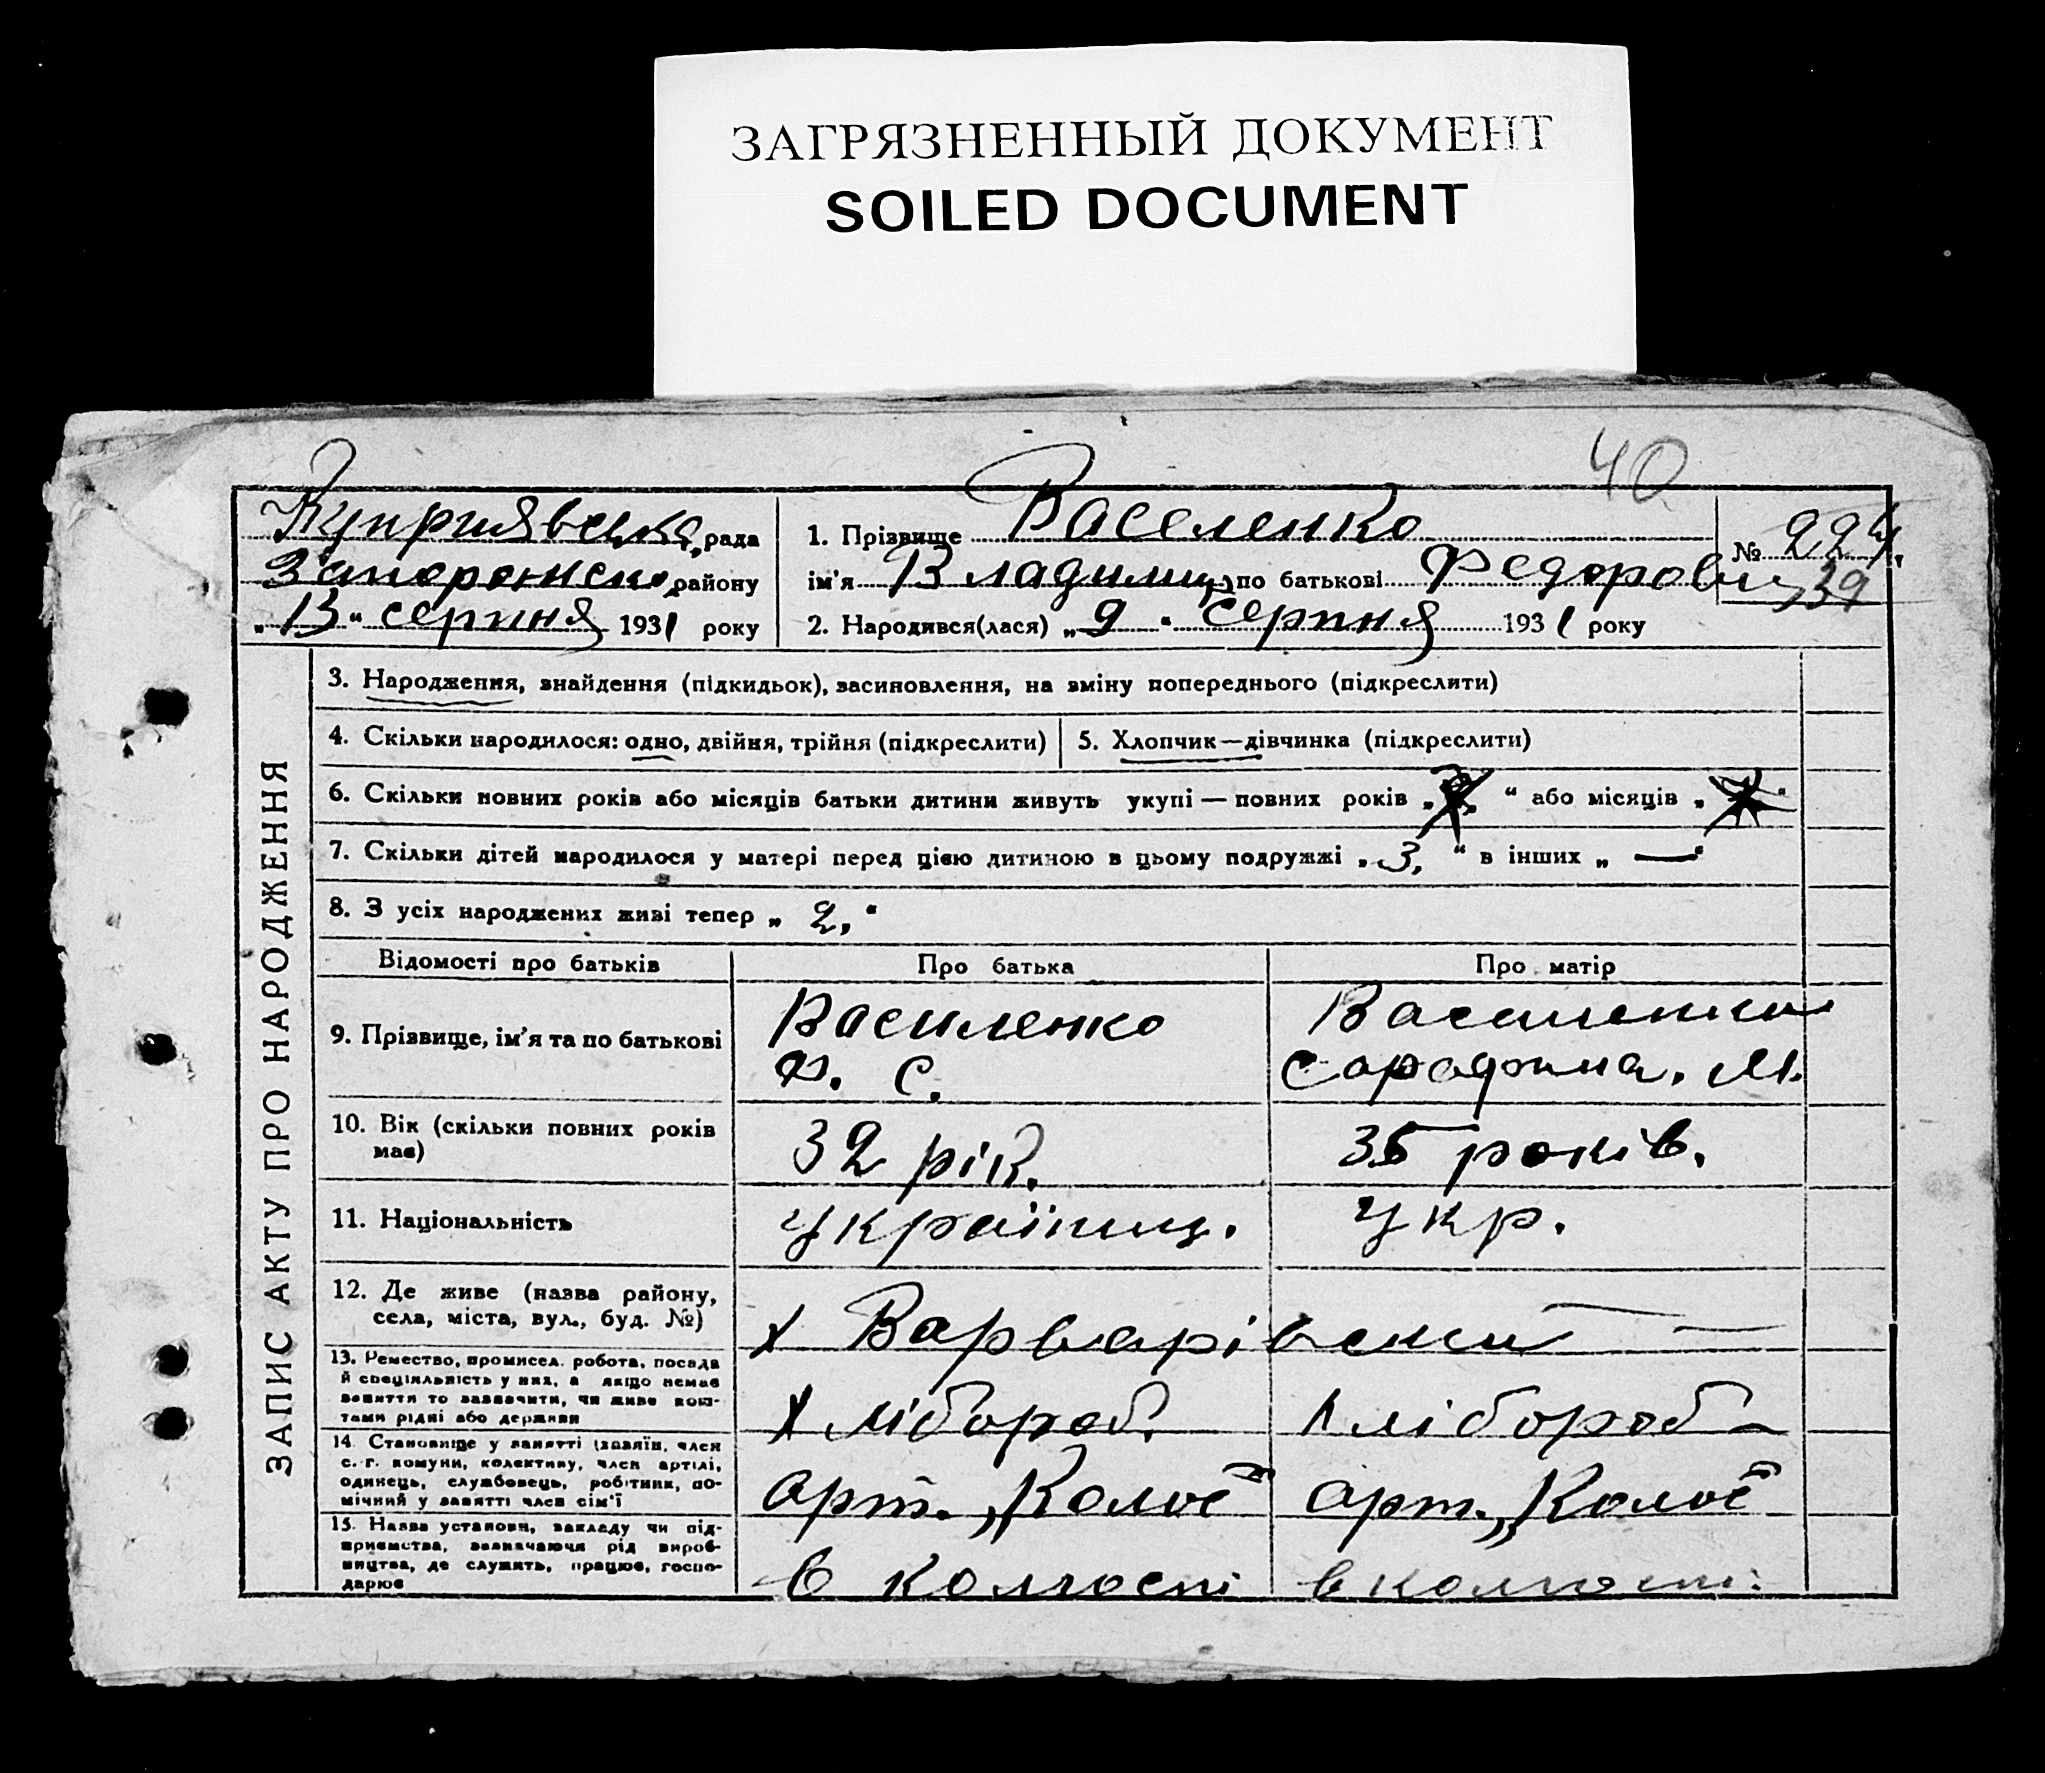 ЗАГРЯЗНЕННЫЙ ДОКУМЕНТ
SOILED DOCUMENT
40
Куприявська рада
Запорожско району
„13“ серпня 1931 року
1. Прізвище Василенко
ім'я Владимир по батькові Федорович
2. Народився(лася) „9“ серпня 1931 року
№ 224.
39
ЗАПИС АКТУ ПРО НАРОДЖЕННЯ
3. Народження, знайдення (підкидьок), засиновлення, на зміну попереднього (підкреслити)
4. Скільки народилося: одно, двійня, трійня (підкреслити)
5. Хлопчик—дівчинка (підкреслити)
6. Скільки повних років або місяців батьки дитини живуть укупі — повних років „ “ або місяців „ “
7. Скільки дітей народилося у матері перед цією дитиною в цьому подружжі „3.“ в інших „—“
8. З усіх народжених живі тепер „2.“
Відомості про батьків
Про батька
Про матір
9. Прізвище, ім'я та по батькові
Василенко
Ф. С.
Василенко
Сарафина. М.
10. Вік (скільки повних років
має)
32 рік.
35 років.
11. Національність
українц.
укр.
12. Де живе (назва району,
села, міста, вул., буд. №)
х Варварівски
13. Ремество, промисел, робота, посада
й спеціяльність у них, а якщо немає
заняття то зазначити, чи живе кош-
тами рідні або держави
Хлібороб.
Хлібороб
14. Становище у занятті (хазяїн, член
с.-г. комуни, колективу, член артілі,
одинець, службовець, робітник, по-
мічний у занятті член сім'ї
арт. „Колос“
арт. „Колос“
15. Назва установи, закладу чи під-
приємства, зазначаючи рід вироб-
ництва, де служить, працює, госпо-
дарює
в колгоспі
в колгоспі